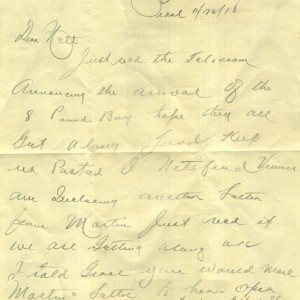 11/26/16
Dear Nett
Just recd the Telegram
Announcing the arrival of the
8 Pound Boy hope they all
Get along Good Keep
us Posted I
am Inclosing another Letter
from Martin Just recd it
we are Getting along
I told Grace you would mail
Martins Letter to